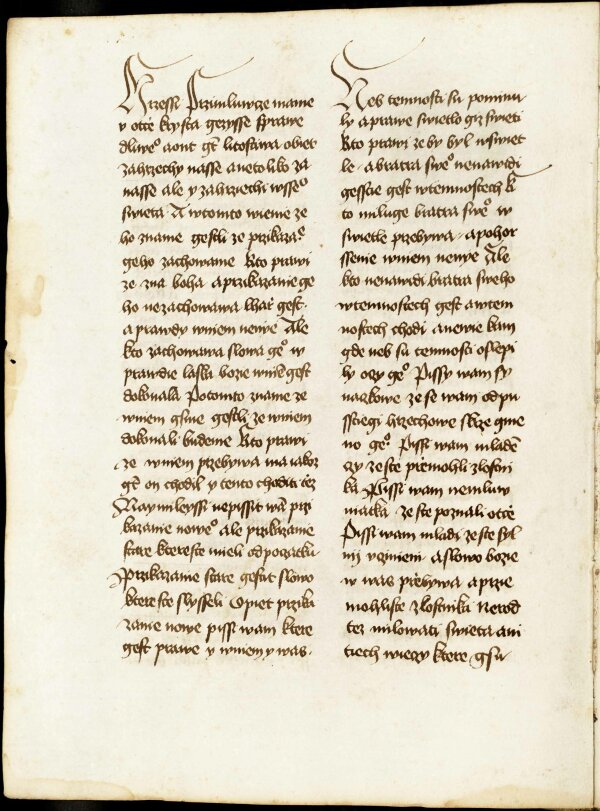 hrzessi Przimluwcze mame
y otcze krysta gezysse sprawe
dliweº a ont gt litostawa obiet
za hrzechy nasse a ne toliko za
nasse ale y za hrziechi wsseº
swieta A w tomto wieme ze
ho zname gestli ze przikazaº
geho zachowame Kto prawi
ze zna boha a przikazanie ge
ho nezachowawa lharz gest
a prawdy w niem nenye Ale
kto zachowawa slowa geº w
prawdie laska bozie w niem gest
dokonala Potomto zname ze
w niem gsme gestli ze w niem
dokonali budeme Kto prawi
ze w niem przebywa ma iakoz
gt on chodil y tento choditi tez
Naymileyssi nepissit wam przi
kazanie noweº ale przikazanie
stare ktere ste mieli od poczatku
Przikazanie stare gestit slowo
ktere ste slysseli Opiet przika
zanie nowe pissi wam ktere
gest prawe y w niem y was
Neb temnosti su pominu
ly a prawe swietlo giz swieti
Kto prawi ze by byl w swiet
le a bratra sweº nenawidi
gesscie gest w temnostech K
to miluge bratra sweº w
swietle przebywa a pohor
ssenie w niem nenye Ale
kto nenawidi bratra sweho
w temnostech gest a w tem
nostech chodi a newie kam
gde neb su temnosti oslepi
ly oczy geº Pissy wam sy
naczkowe ze se wam odpu
sstiegi hrzechowe skrze gme
no geº Pissi wam mladen
czy ze ste przemohli zlostni
ka Pissi wam nemluw
niatka ze ste poznali otcze
Pissi wam mladi ze ste syl
nij vzinieni a slowo bozie
w was przebywa a przie
mohliste zlostnika Nerod
tez milowati swieta ani
tiech wieczy ktere gsu